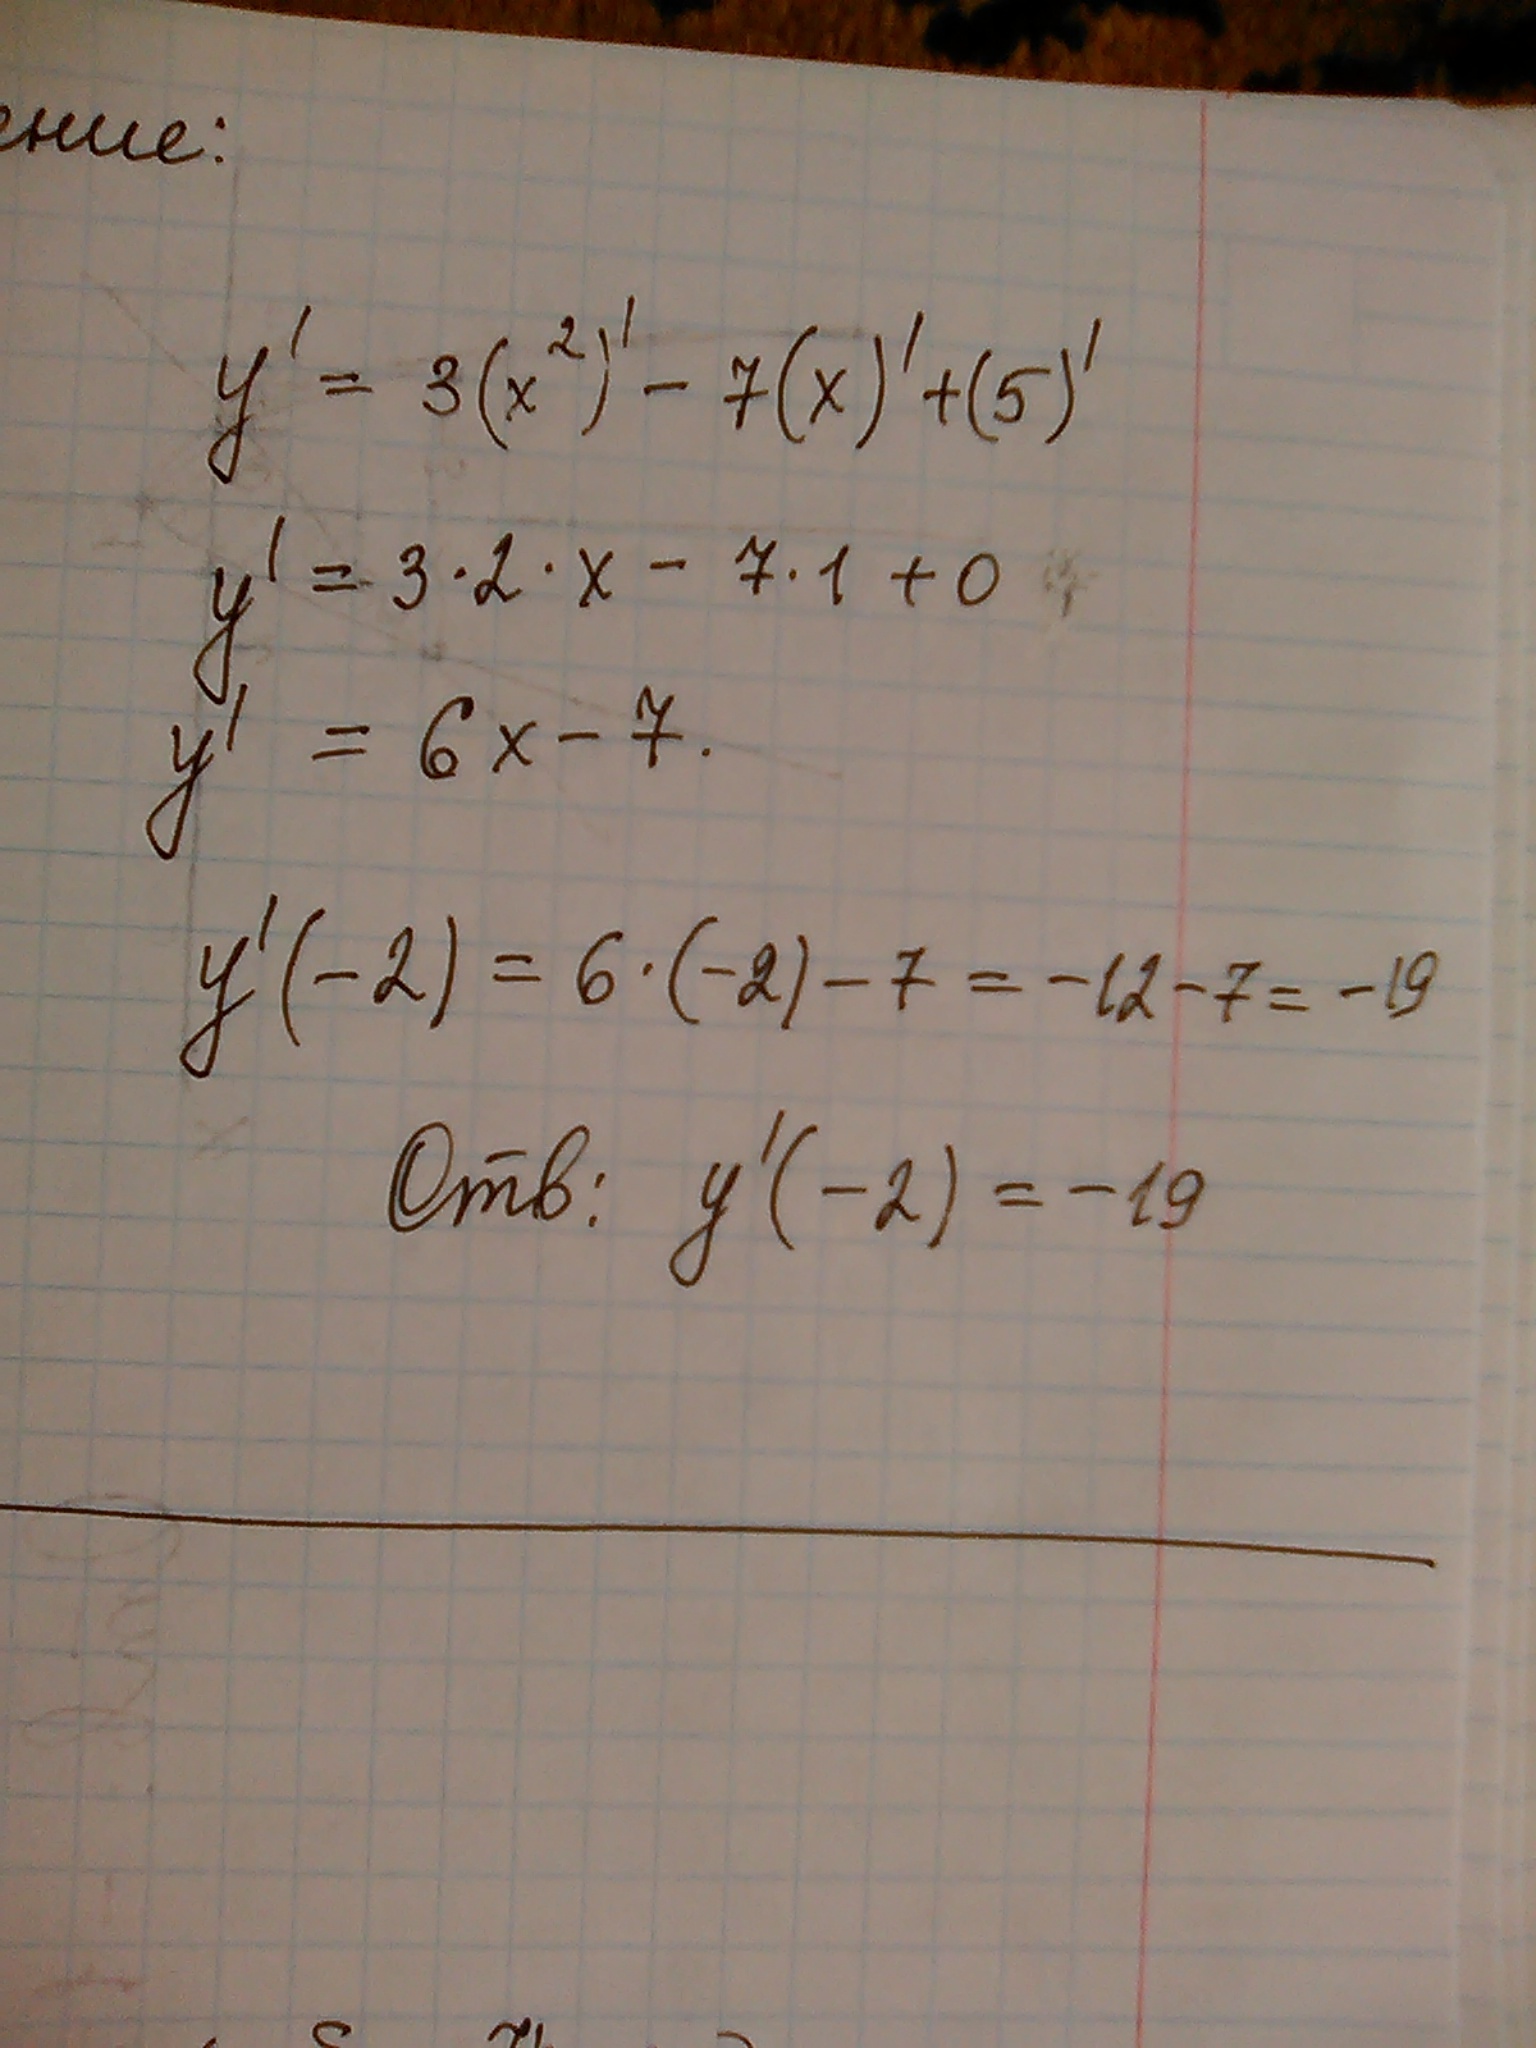 ение:
y' = 3(x²)' - 7(x)' + (5)'
y' = 3·2·x - 7·1 + 0
y' = 6x - 7.
y'(-2) = 6·(-2) - 7 = -12 - 7 = -19
Отв: y'(-2) = -19